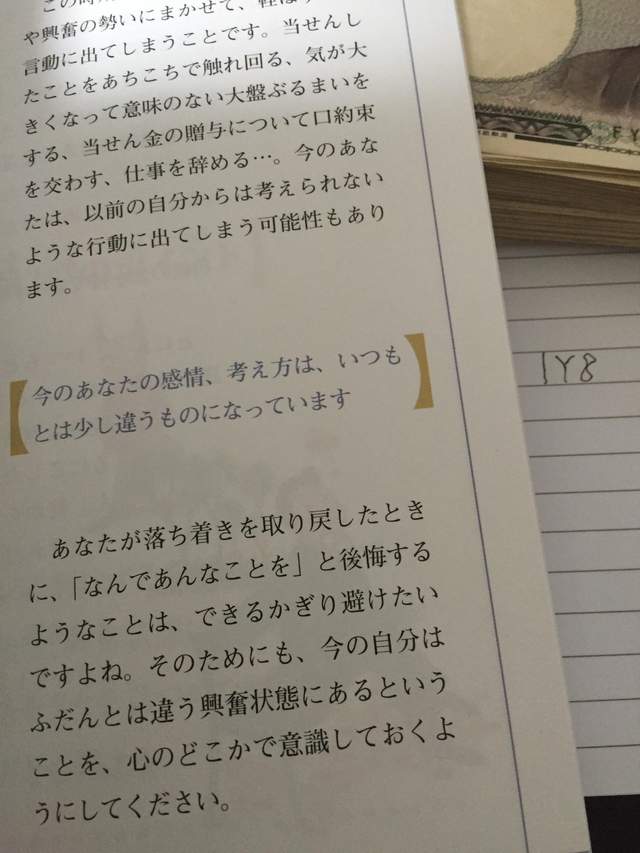 この時
や興奮の勢いにまかせて、軽は
言動に出てしまうことです。当せんし
たことをあちこちで触れ回る、気が大
きくなって意味のない大盤ぶるまいを
する、当せん金の贈与について口約束
を交わす、仕事を辞める…。今のあな
たは、以前の自分からは考えられない
ような行動に出てしまう可能性もあり
ます。
【今のあなたの感情、考え方は、いつも
とは少し違うものになっています】
あなたが落ち着きを取り戻したとき
に、「なんであんなことを」と後悔する
ようなことは、できるかぎり避けたい
ですよね。そのためにも、今の自分は
ふだんとは違う興奮状態にあるという
ことを、心のどこかで意識しておくよ
うにしてください。
1Y8